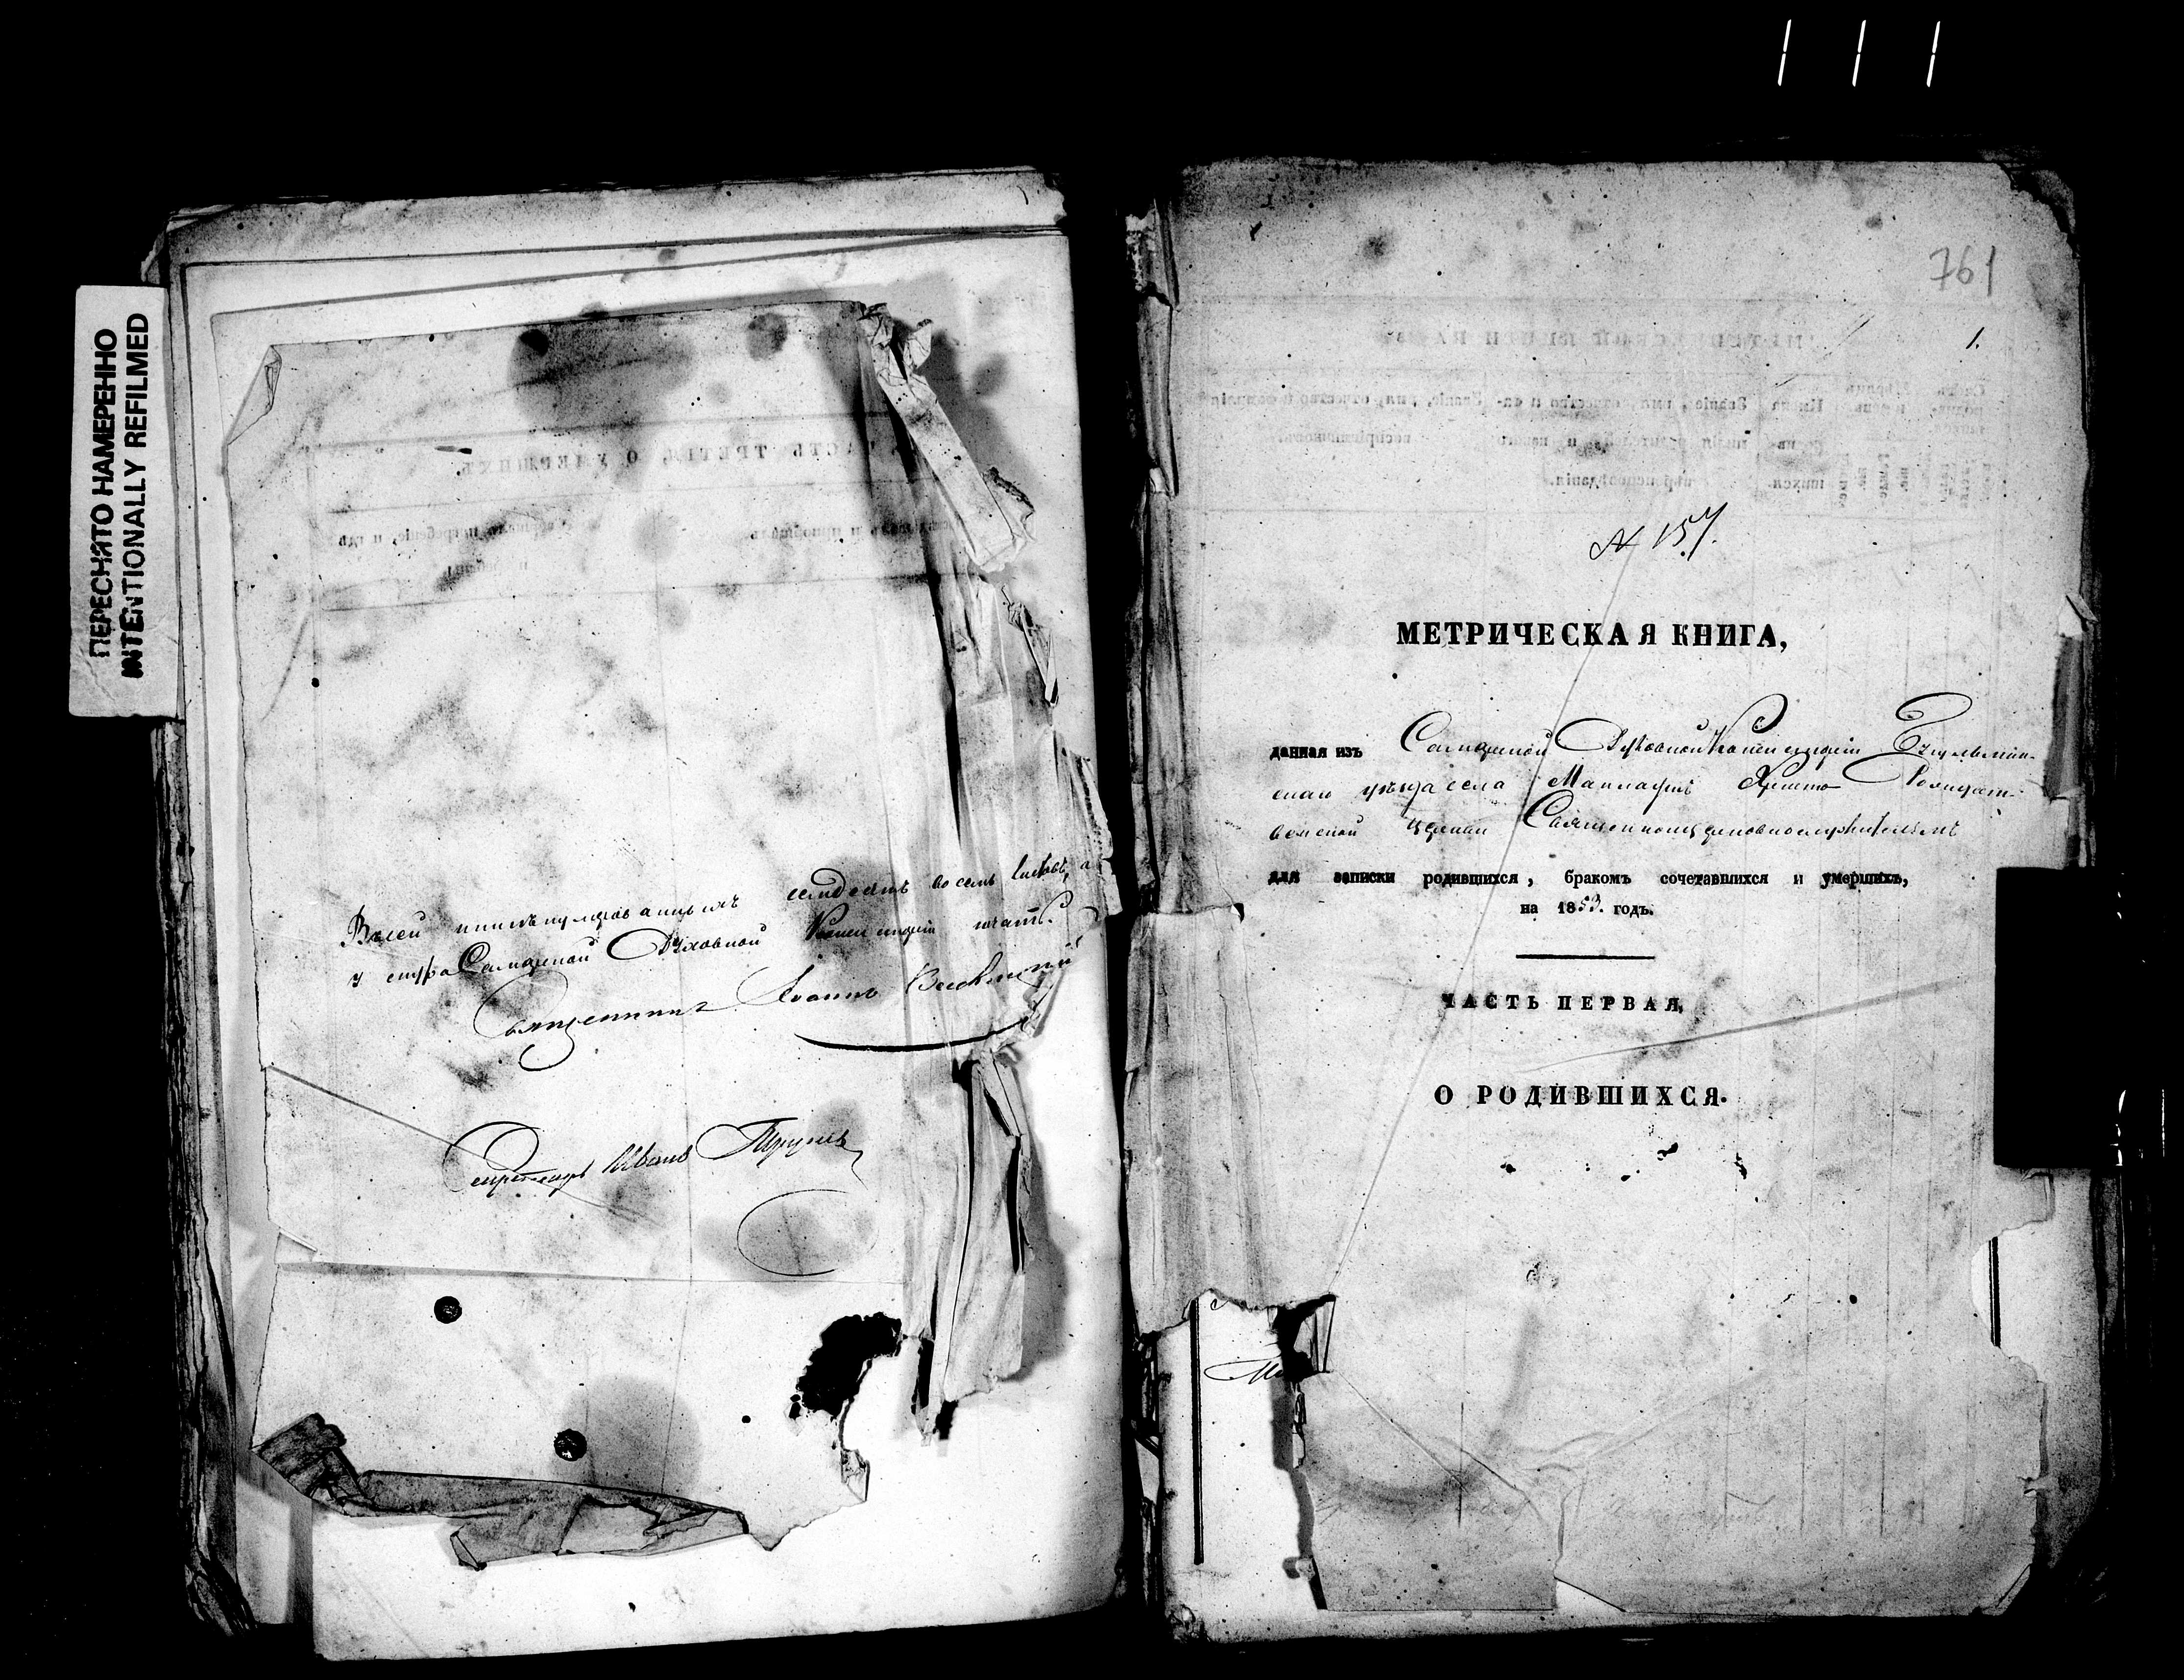 ПЕРЕСНЯТО НАМЕРЕННО
INTENTIONALLY REFILMED
В сей шнъпумерованныхъ семдесятъ восемь листовъ, а
у сеura Самарской Духовной Консисторіи печать.
Священникъ Іоаннъ
Секретарь Иванъ
761
1.
№ 157.
МЕТРИЧЕСКАЯ КНИГА,
данная изъ Самарской Духовной Консисторіи Бугульмин-
скаго уѣзда села Христо Рождест-
венской церкви Священноцерковнослужителямъ
для записки родившихся, бракомъ сочетавшихся и умершихъ,
на 1853. годъ.
ЧАСТЬ ПЕРВАЯ,
О РОДИВШИХСЯ.